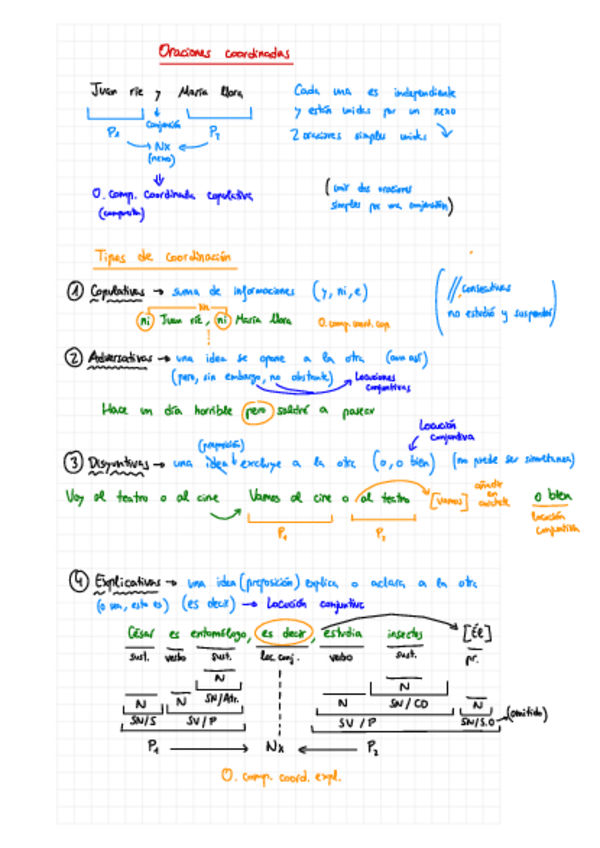 Oraciones coordinadas
Juan ríe y María llora
Conjunción
P1 P2
Nx
(nexo)
Cada una es independiente
y están unidas por un nexo
2 oraciones simples unidas
O. Comp. Coordinada copulativa
(compuesta)
(unir dos oraciones
simples por una conjunción)
Tipos de coordinación
① Copulativas → suma de informaciones (y, ni, e)
Nx
ni Juan ríe, ni María llora O. comp. coord. cop.
(// consecutivas
no estudió y suspendió)
② Adversativas → una idea se opone a la otra (aun así)
(pero, sin embargo, no obstante) Locuciones
conjuntivas
Hace un día horrible pero saldré a pasear
Locución
conjuntiva
(proposición)
③ Disyuntivas → una idea excluye a la otra (o, o bien) (no puede ser simultanea)
Voy al teatro o al cine Vamos al cine o al teatro [vamos] añadir
en
corchete
o bien
locución
conjuntiva
P1 P2
④ Explicativas → una idea (proposición) explica o aclara a la otra
(o sea, esto es) (es decir) → Locución conjuntiva
César es entomólogo, es decir, estudia insectos [Él]
sust. verbo sust. loc. conj. verbo sust. pr.
N N
N N SN/Atr. N SN/CO N
SN/S SV/P SV/P SN/S.O (omitido)
P1 → Nx ← P2
O. comp. coord. expl.